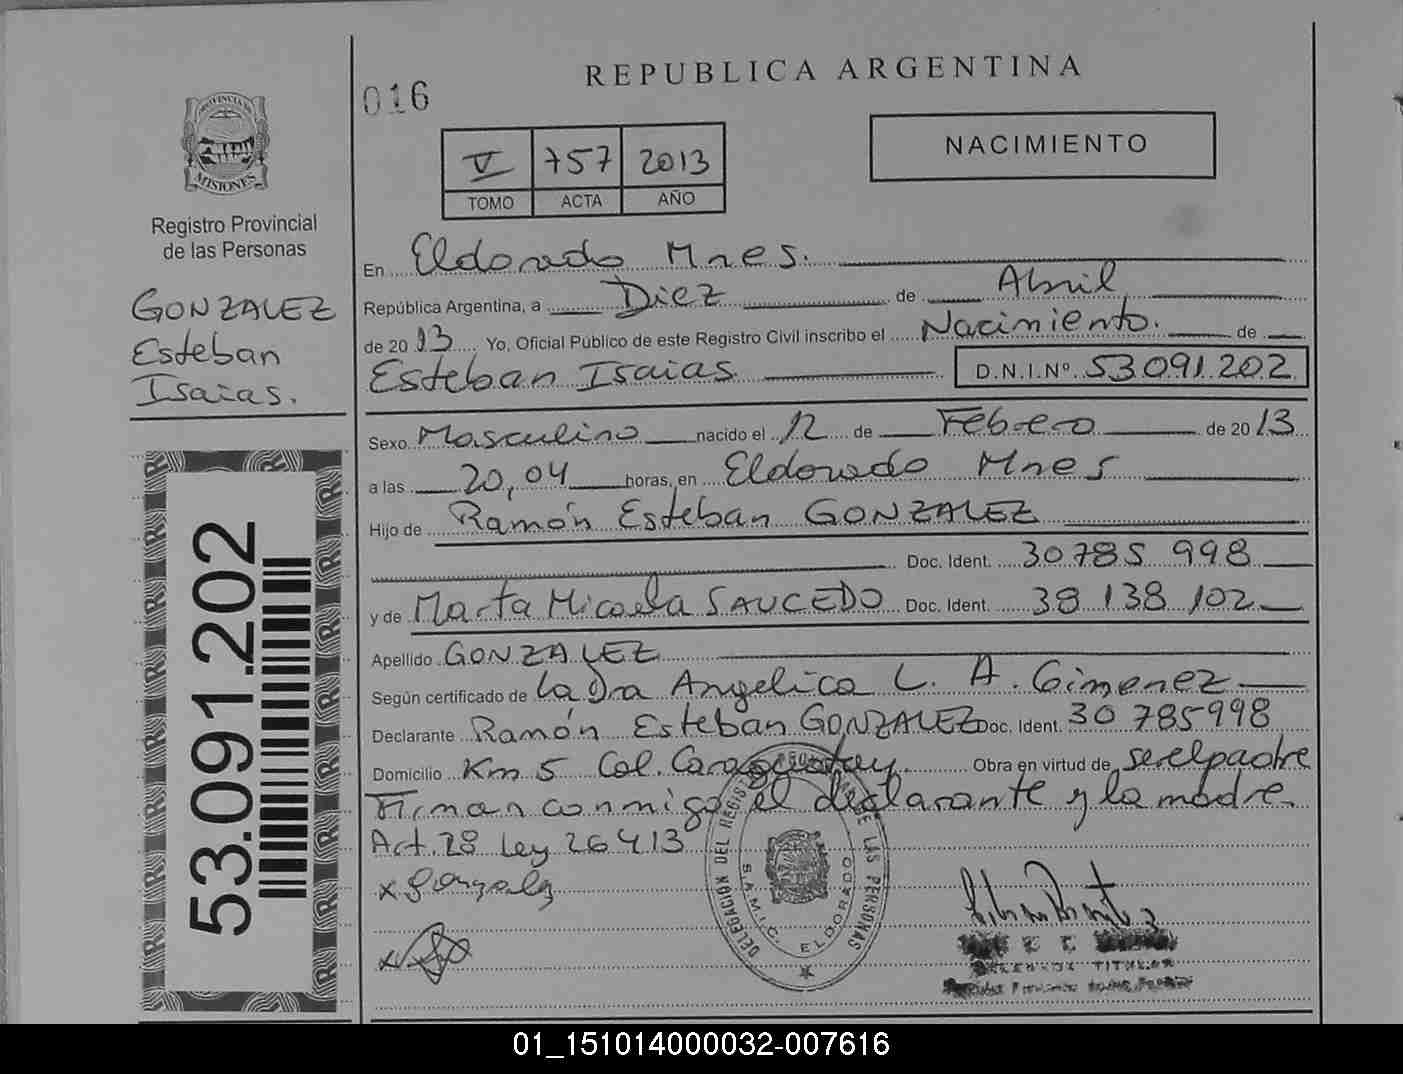 REPUBLICA ARGENTINA
016
NACIMIENTO
V 757 2013
TOMO ACTA AÑO
PROVINCIA DE MISIONES
Registro Provincial
de las Personas
GONZALEZ
Esteban
Isaias.
53.091.202
En Eldorado Mnes.
República Argentina, a Diez de Abril
de 2013 Yo, Oficial Público de este Registro Civil inscribo el Nacimiento. de
Esteban Isaias D.N.I.Nº. 53.091.202
Sexo Masculino nacido el 12 de Febrero de 2013
a las 20,04 horas, en Eldorado Mnes
Hijo de Ramón Esteban GONZALEZ
Doc. Ident. 30 785 998
y de Marta Micaela SAUCEDO Doc. Ident. 38 138 102
Apellido GONZALEZ
Según certificado de La Dra Angelica L. A. Gimenez
Declarante Ramón Esteban GONZALEZ Doc. Ident. 30 785998
Domicilio Km 5 Col. Caraguatay Obra en virtud de ser el padre
Firman conmigo el declarante y la madre.
Art. 28 Ley 26413
x Gonzalez
x
DELEGACIÓN DEL REGISTRO DE LAS PERSONAS
S.A.M.I.C. ELDORADO
TITULAR
01_151014000032-007616